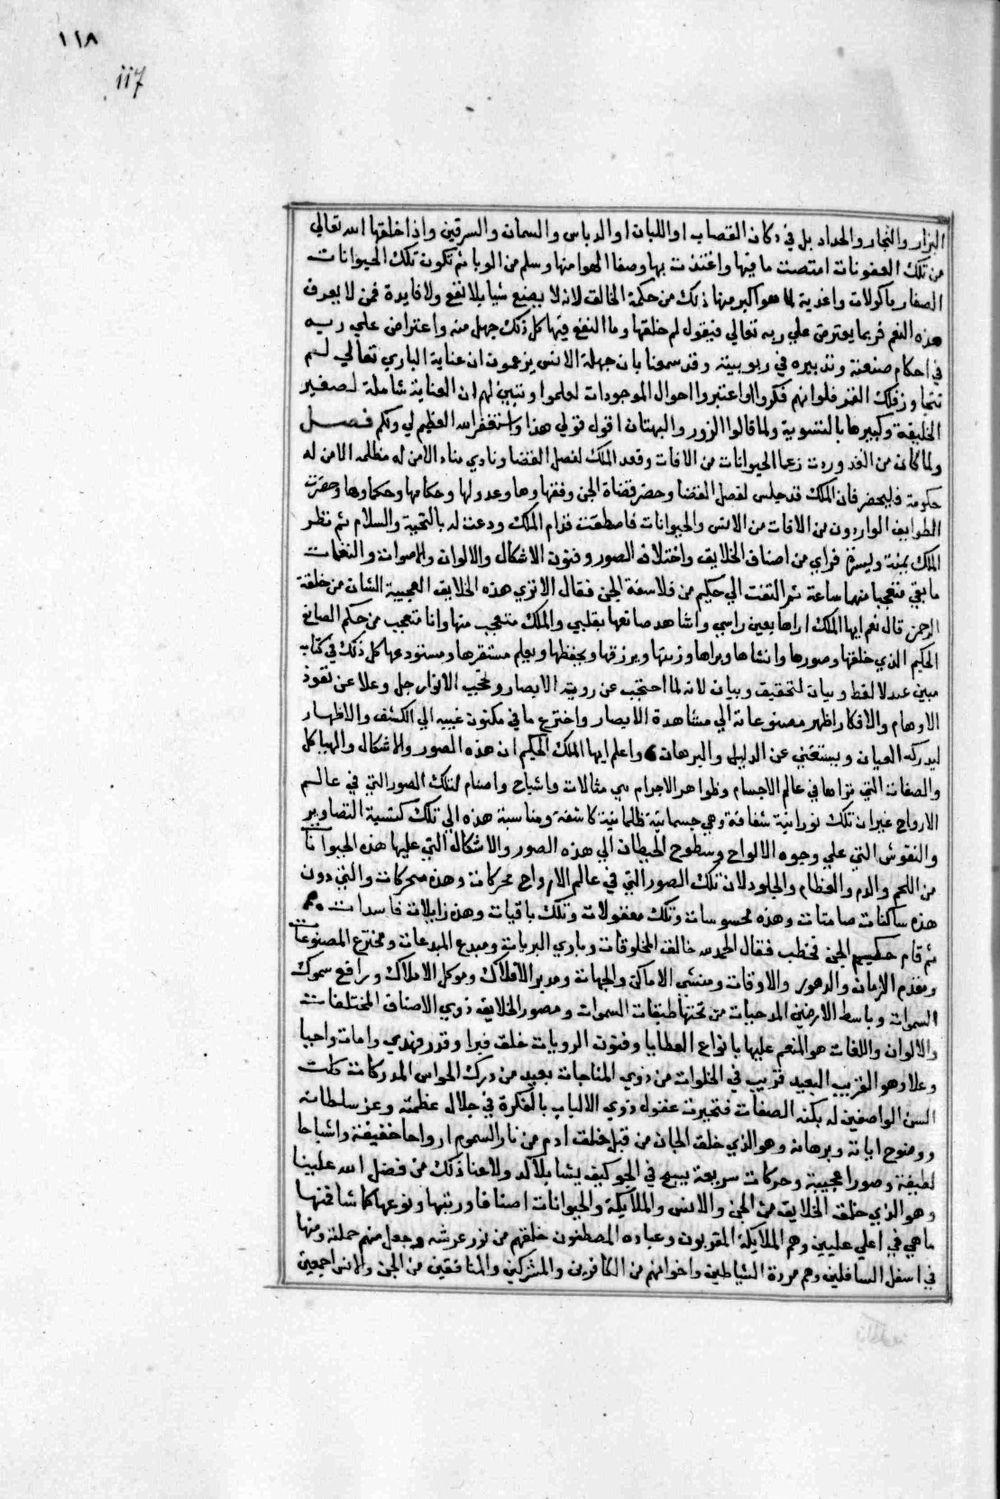 ١١٨
117
البزار والنجار والحداد بل في دكان القصاب او اللبان او الدباس والسمان والسرقين واذا خلقها الله تعالي
من تلك العفونات امتصت ما فيها واغتذت بها وصفا الهوا منها وسلم من الوبا ثم تكون تلك الحيوانات
الصغار ماكولات واغدية لما هو اكبر منها ذلك من حكمة الخالق لانه لا يصنع شيا بلا نفع ولا فايدة فمن لا يعرف
هذه النعم فربما يعترض علي ربه تعالي فيقول لم خلقها وما النفع فيها كل ذلك جهل منه واعتراض علي ربه
في احكام صنعته وتدبيره في ربوبيته وقد سمعنا بان جهلة الانس يزعمون ان عناية الباري تعالي لم
تتجاوز فلك القمر فلو انهم فكروا واعتبروا احوال الموجودات لعلموا وتبين لهم ان العناية شاملة لصغير
الخليقة وكبيرها بالتسوية ولما قالوا الزور والبهتان اقول قولي هذا واستغفر الله العظيم لي ولكم فصل
ولما كان من الغد وردت زعما الحيوانات من الافاق وقعد الملك لفصل القضا ونادي مناد الا من له مظلمه الا من له
حكومة فليحضر فان الملك قد جلس لفصل القضا وحضر قضاة الجن وفقهاوها وعدولها وحكامها وحكماوها وحضرت
الطوايف الواردون من الافاق من الانس والحيوانات فاصطفت قدام الملك ودعت له بالتحية والسلام ثم نظر
الملك يمنة ويسرة فراي من اصناف الخلايق واختلاف الصور وفنون الاشكال والالوان والاصوات والنغمات
ما بقي متعجبا منها ساعة ثم التفت الي حكيم من فلاسفة الجن فقال الا تري هذه الخلايق العجيبة الشان من خلقة
الرحمن قال نعم ايها الملك اراها بعين راسي واشاهد صانعها بقلبي والملك متعجب منها وانا متعجب من حكم الصانع
الحكيم الذي خلقها وصورها وانشاها وبراها وزينها ويرزقها ويحفظها ويعلم مستقرها ومستودعها كل ذلك في كتاب
مبين عنده لا لفظ وبيان لتحقيق وبيان لانه لما احتجب عن روية الابصار وتحجب الانوار جل وعلا عن نفوذ
الاوهام والافكار اظهر مصنوعاته الي مشاهدة الابصار واخترع ما في مكنون غيبه الي الكشف والاظهار
ليدركه العيان ويستغني عن الدليل والبرهان واعلم ايها الملك الحكيم ان هذه الصور والاشكال والهياكل
والصفات التي تراها في عالم الاجسام وظواهر الاجرام هي مثالات واشباح واصنام لتلك الصور التي في عالم
الارواح غير ان تلك نورانية شفافة وهي جسمانية ظلمانية كاشفة ومناسبة هذه الي تلك كنسبة التصاوير
والنقوش التي علي وجوه الالواح وسطوح الحيطان الي هذه الصور والاشكال التي عليها هذه الحيوانات
من اللحم والدم والعظام والجلود لان تلك الصور التي في عالم الارواح محركات وهذه متحركات والتي دون
هذه ساكنات صامتات وهذه محسوسات وتلك معقولات وتلك باقيات وهذه زايلات فاسدات
ثم قام حكيم الجن فخطب فقال الحمد لله خالق المخلوقات وباري البريات ومبدع المبدعات ومخترع المصنوعات
ومقدم الازمان والدهور والاوقات ومنشي الاماكن والجهات ومدبر الافلاك وموكل الاملاك ورافع سموك
السموات وباسط الارضين المدحيات من تحتها طبقات السموات ومصور الخلايق ذوي الاصناف المختلفات
والالوان واللغات هو المنعم عليها بانواع العطايا وفنون الرويات خلق فبرا وقدر فهدي وامات واحيا
وعلا وهو القريب البعيد قريب في الخلوات من ذوي المناجات بعيد من درك الحواس المدركات كلت
السن الواصفين له بكنه الصفات فتحيرت عقول ذوي الالباب بالفكرة في جلال عظمته وعز سلطانه
ووضوح اياته وبرهانه وهو الذي خلق الجان من قبل خلق ادم من نار السموم ارواحا خفيفة واشباحا
لطيفة وصورا عجيبة وحركات سريعة يسبح في الجو كيف يشا بلا كد ولا عنا ذلك من فضل الله علينا
وهو الذي خلق الخلايق من الجن والانس والملايكة والحيوانات اصنافا ورتبها ونوعها كما شا فمنها
ما هي في اعلي عليين وهم الملايكة المقربون وعباده المصطفون خلقهم من نور عرشه وجعل منهم حملته ومنها
في اسفل السافلين وهم مردة الشياطين واخوانهم من الكافرين والمشركين والمنافقين من الجن والانس اجمعين